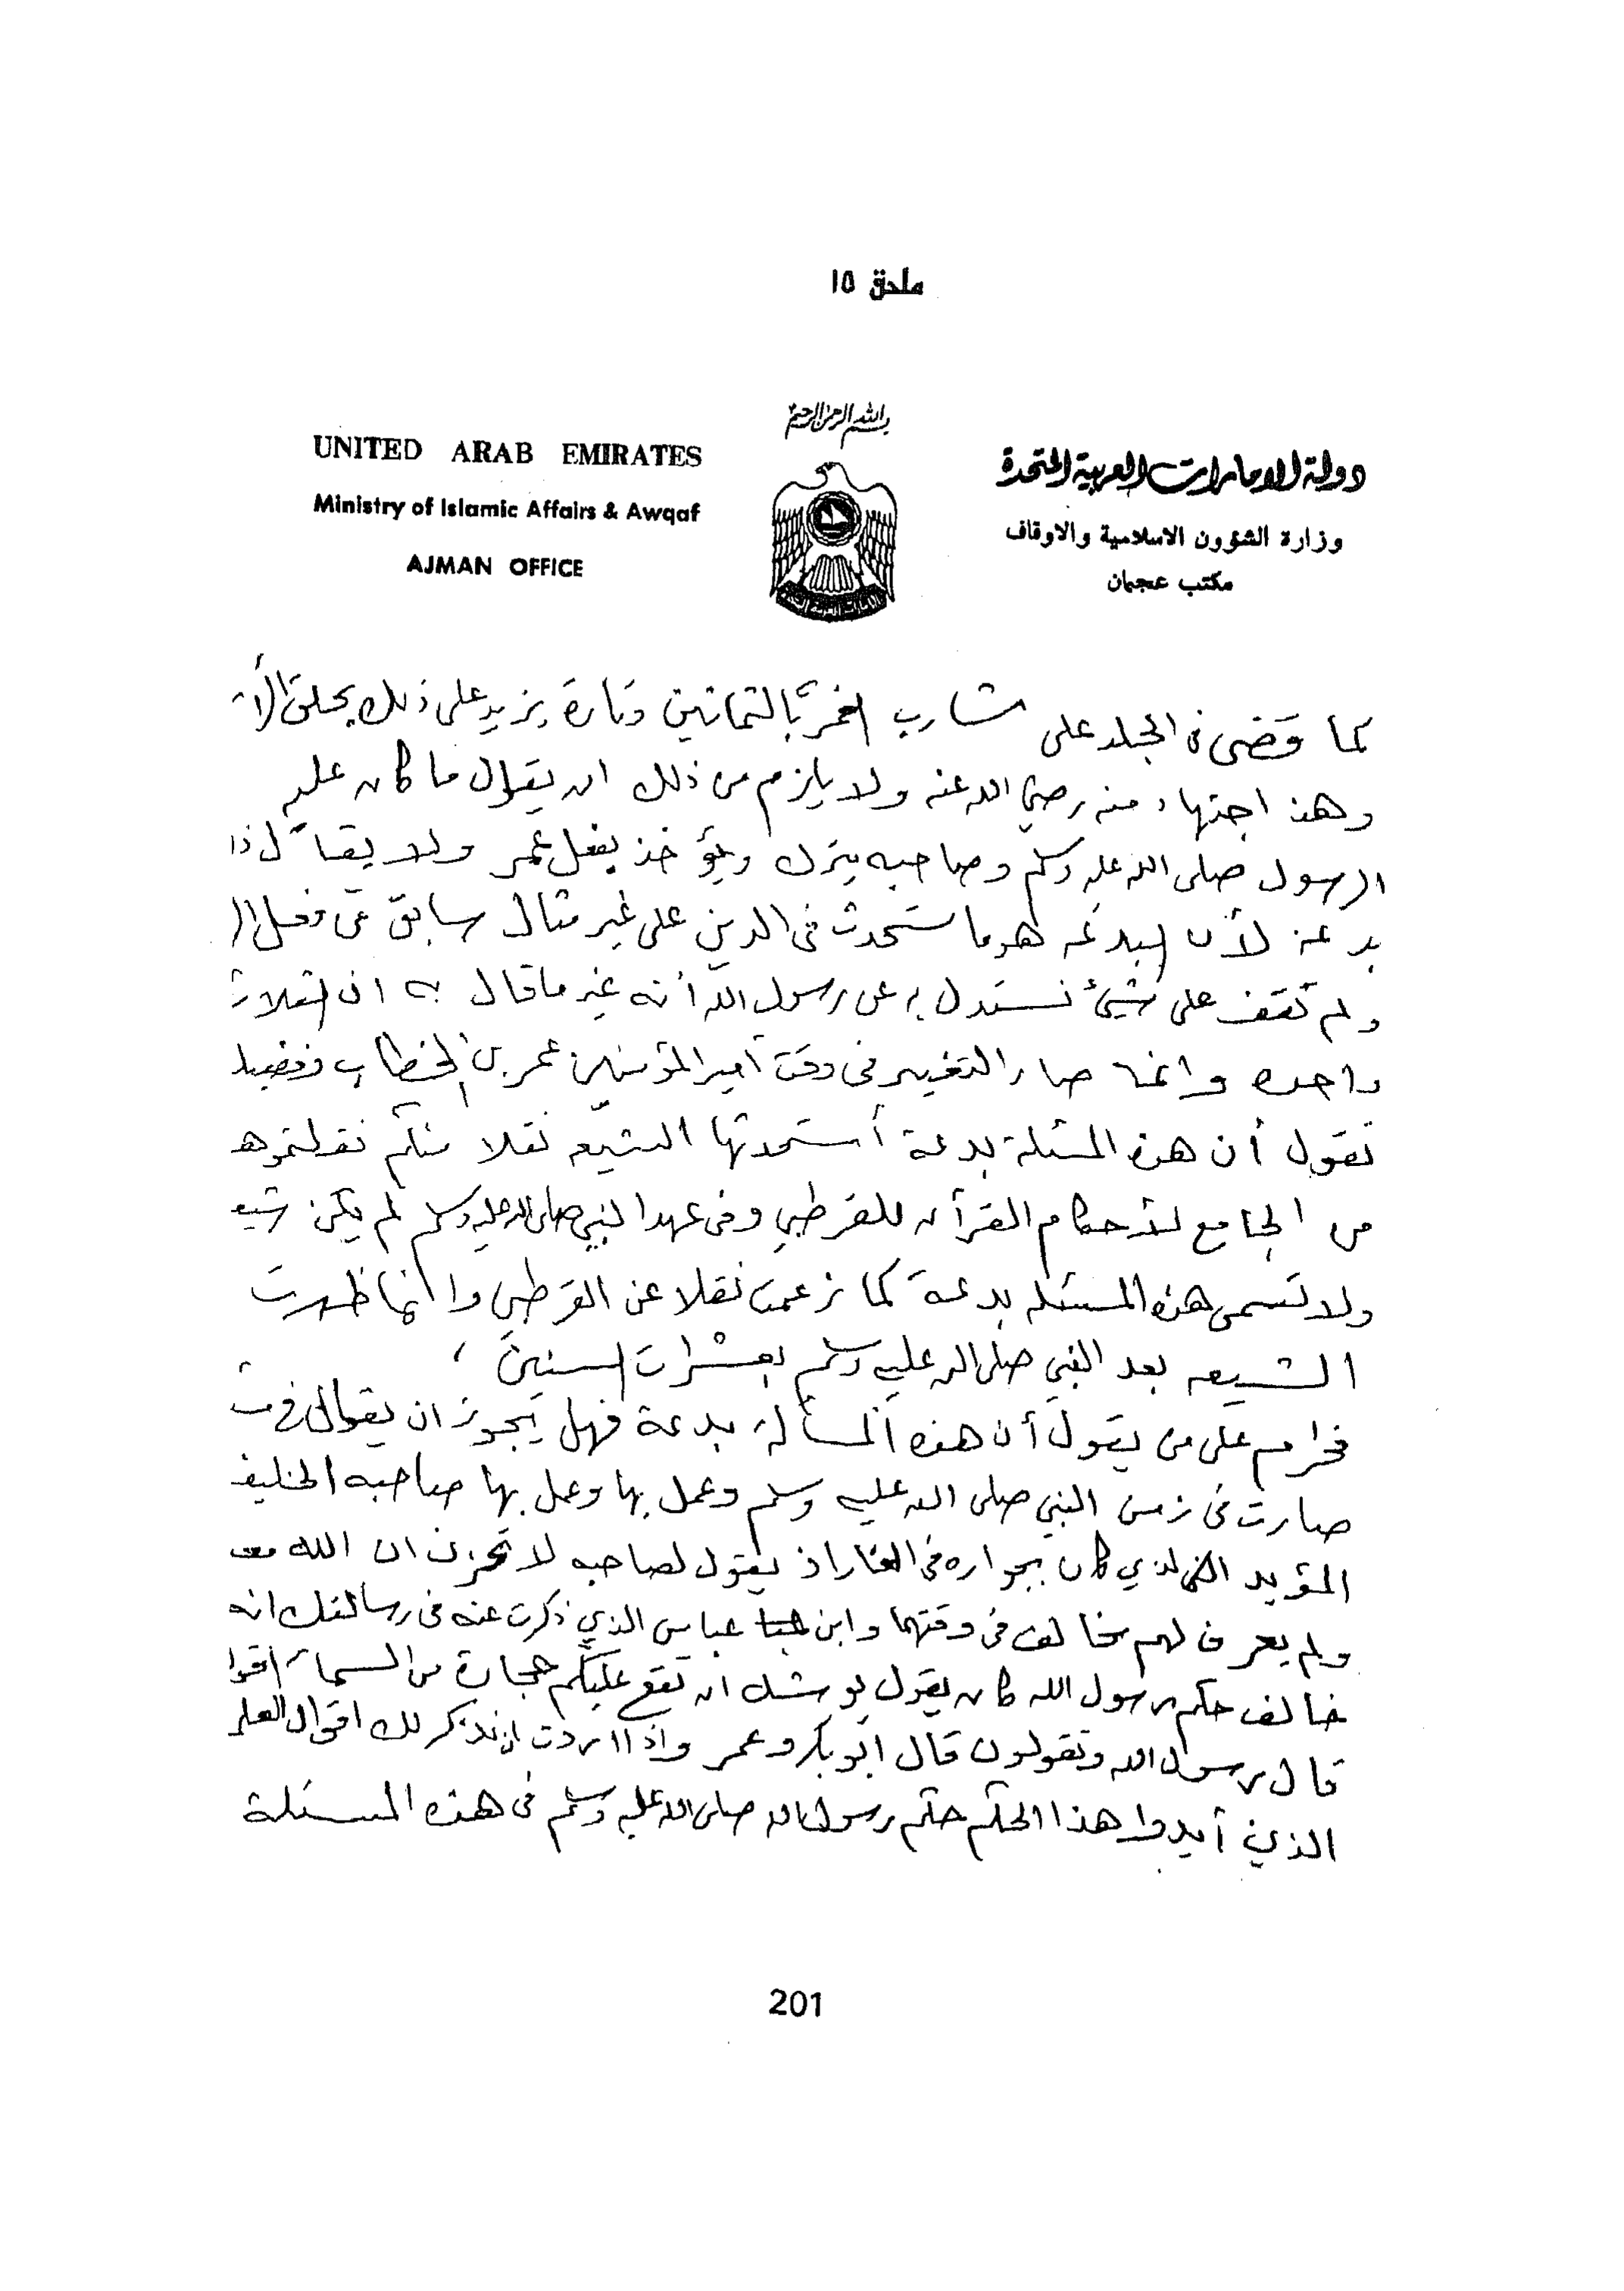 ملحق ١٥
بسم الله الرحمن الرحيم
UNITED ARAB EMIRATES
Ministry of Islamic Affairs & Awqaf
AJMAN OFFICE
دولة الامارات العربية المتحدة
وزارة الشؤون الاسلامية والاوقاف
مكتب عجمان
كما قضى في الجلد على شارب الخمر بالثمانين وتارة يزيد على ذلك بحلق
وهذا اجتهاد منه رضي الله عنه ولا يلزم من ذلك ان يقول ما كان عليه
الرسول صلى الله عليه وسلم وصاحبه يترك ويؤخذ بفعل عمر ولا يقال
بدعة لأن البدعة هو ما ستحدث في الدين على غير مثال سابق
ولم نقف على شيئ نستدل به عن رسول الله أنه غير ما قال به ان الثلاث
واحده وانما صار التغيير في وقت أمير المؤمنين عمر بن الخطاب
تقول أن هذه المسئلة بدعة أستحدثها الشيعه نقلا منكم
من الجامع لأحكام القرآن للقرطبي وفي عهد النبي صلى الله عليه وسلم لم يكن
ولا تسمى هذه المسئله بدعة كما زعمت نقلا عن القرطبي وانما ظهرت
الشيعه بعد النبي صلى الله عليه وسلم بعشرات السنين
فحرام على من يقول أن هذه المسألة بدعة فهل يجوز ان يقال
صارت في زمن النبي صلى الله عليه وسلم وعمل بها وعمل بها صاحبه
المؤيد الذي كان بجواره في الغار اذ يقول لصاحبه لا تحزن ان الله
ولم يعرف لهم مخالف في وقتهما وابن عباس الذي ذكرت عنه في رسالتك انه
خالف حكم رسول الله كان يقول يوشك ان تقع عليكم حجارة من السماء
قال رسول الله وتقولون قال ابو بكر وعمر واذا اردت ان نذكر لك اقوال
الذين أيدوا هذا الحكم حكم رسول الله صلى الله عليه وسلم في هذه المسئلة
201